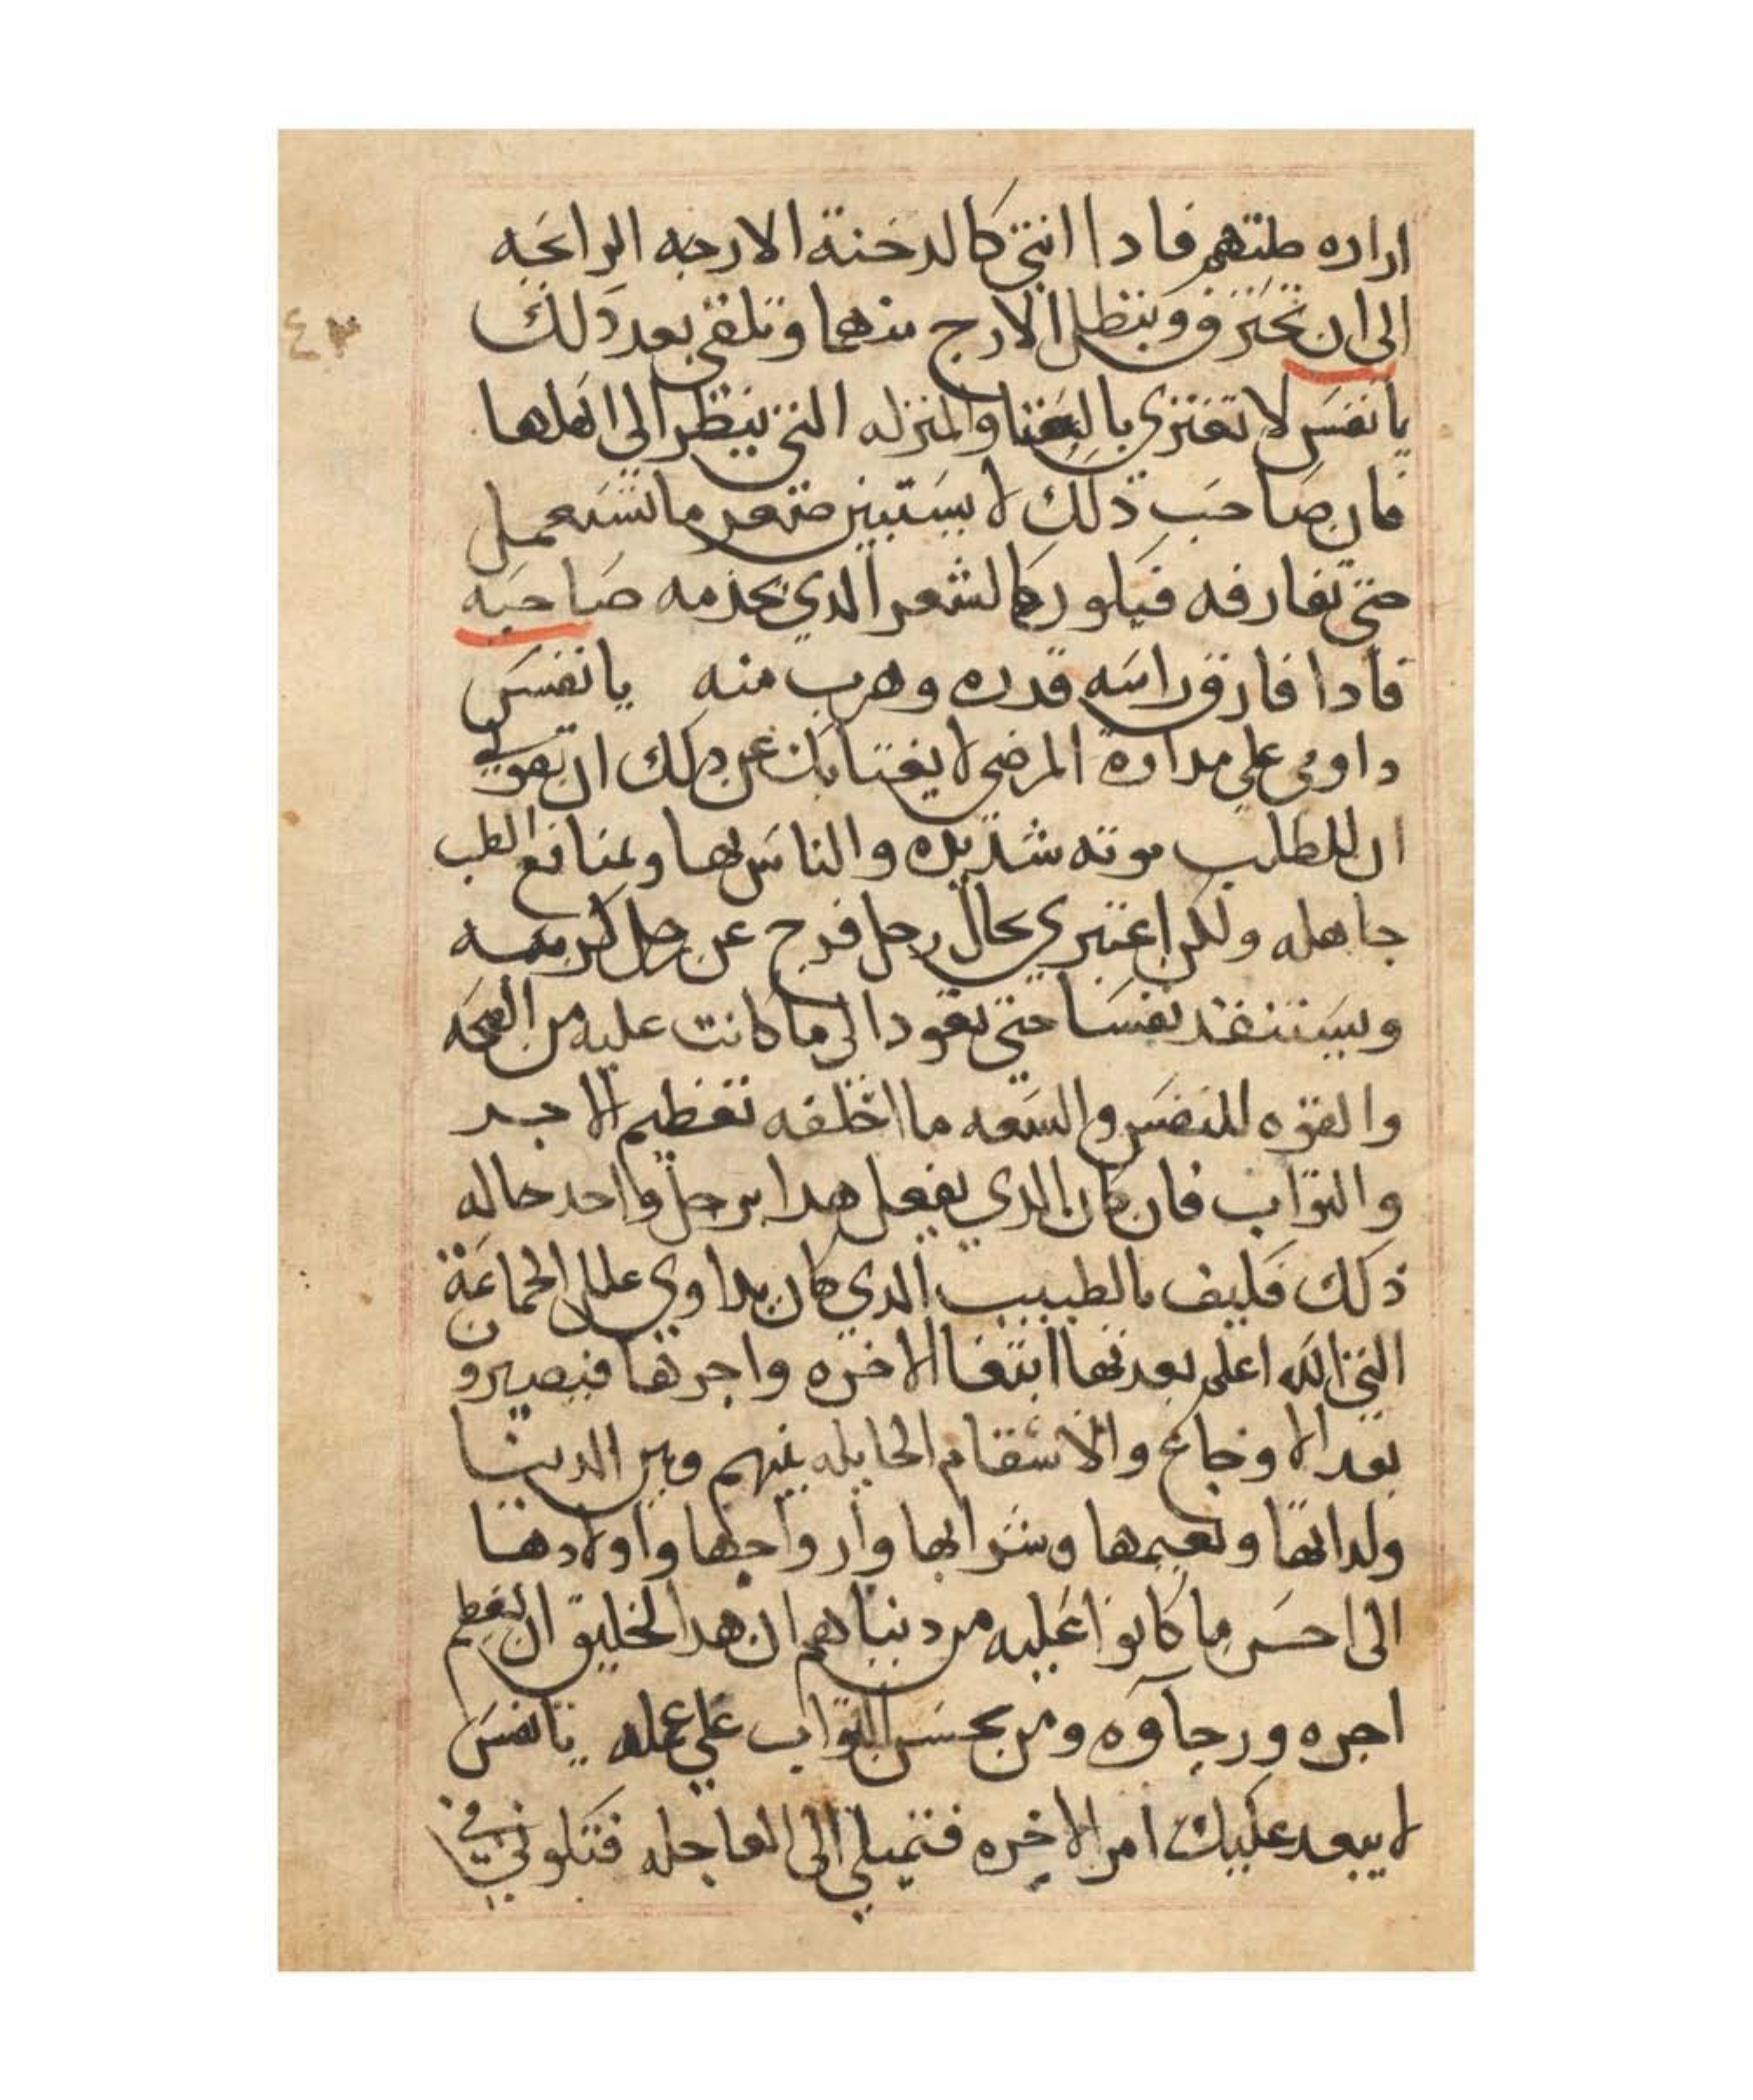 اراده طبتهم فادا انتي كالدخنة الارجه الرائحه
الى ان تحترق وينتظل الارج منهما وتلقى بعد دلك
٤٣
يا نفس لا تغتري بالغنا والمنزله التي ينظر الى اهلها
فان صاحب ذلك لا يستبين صغر ما تستعمل
حتى تفارقه فيكور كالشعر الدي يخدمه صاحبه
فادا فارق راسه قدره وهرب منه يا نفس
داومي علي مداوة المرضى لا يغتابك عن دلك ان تقولي
ان للطلب موته شديده والناس بها ولمنافع الطب
جاهله ولكن اعتبري بحال رجل فرج عن رجل كربه
ويستنقد نفسا حتي تعود الى ما كانت عليه من الصحه
والقوه للنفس والسعه ما اخلقه تعظيم الاجر
والثواب فان كان الدي يفعل هدا برجل واحد حاله
ذلك فكيف بالطبيب الدي كان يداوي علل الجماعة
التي الله اعلم بعدتها ابتغا الاخره واجرها فيصيرون
بعد الاوجاع والاسقام الحايله بينهم وبين الدينا
ولداتها ونعيمها وشرابها وازواجها واولادها
الى احسن ما كانوا عليه من دنياهم ان هدا لخليق ان يعظم
اجره ورجآوه ومن بحسن الثواب علي عمله يا نفس
لا يبعد عليك امر الاخره فتميلي الى العاجله فتكوني في